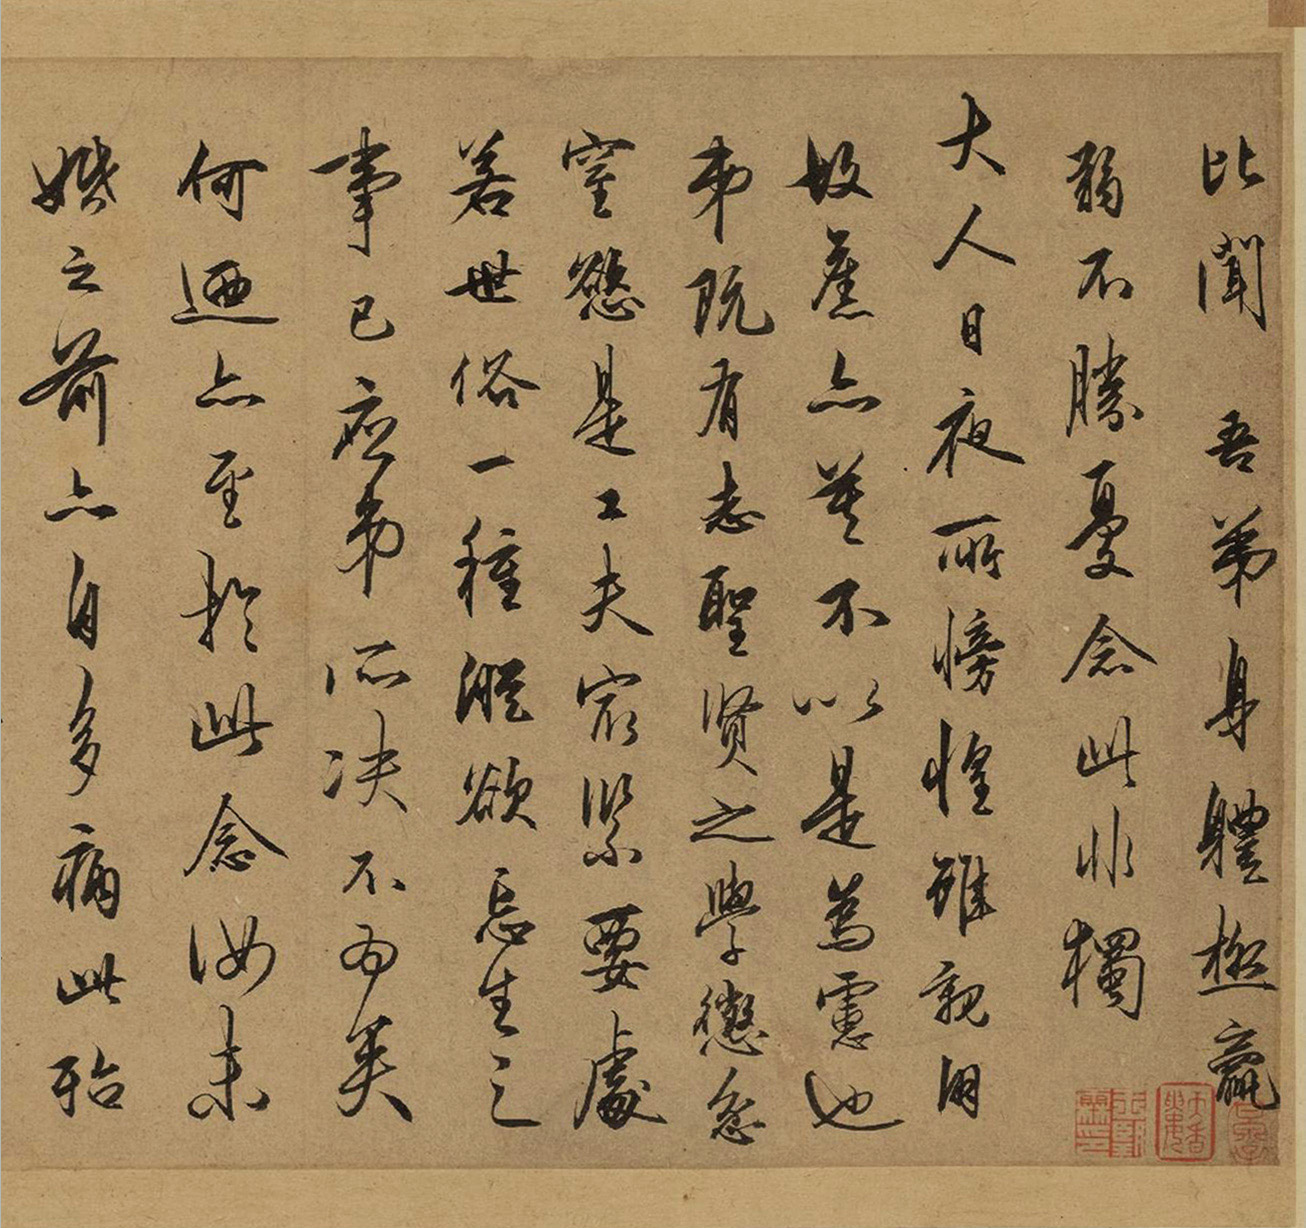 比聞　吾弟身體極羸
弱不勝憂念此非獨
大人日夜所惶惶雖親朋
故舊亦莫不以是為慮也
弟既有志聖賢之學懲忿
窒慾是工夫最緊要處
若世俗一種縱欲忘生之
事已應弟所決不為矣
何迺亦至於此念汝未
婚之前亦自多病此殆